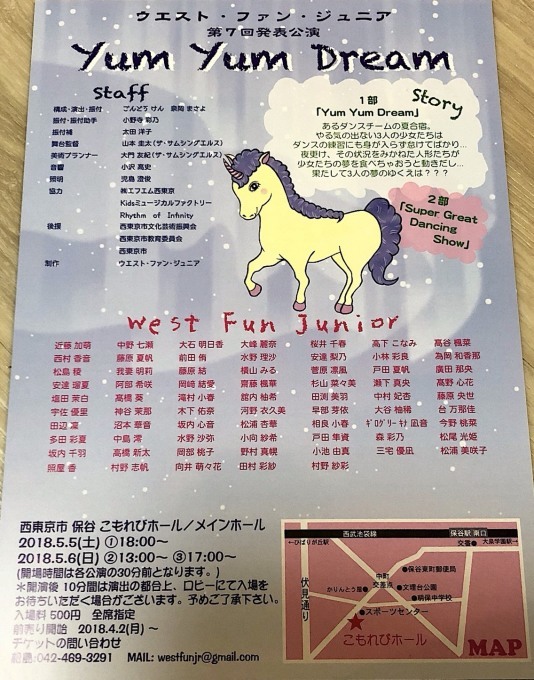 ウエスト・ファン・ジュニア
第7回発表公演
Yum Yum Dream
Staff
構成・演出・振付 ごんどう けん 泉岡 まさよ
振付・振付助手 小野寺 彩乃
振付補 太田 洋子
舞台監督 山本 圭太(ザ・サムシングエルス)
美術プランナー 大門 友紀(ザ・サムシングエルス)
音響 小沢 高史
照明 児島 澄俊
協力 ㈱エフエム西東京
Kidsミュージカルファクトリー
Rhythm of Infinity
後援 西東京市文化芸術振興会
西東京市教育委員会
西東京市
制作 ウエスト・ファン・ジュニア
Story
1部
「Yum Yum Dream」
あるダンスチームの夏合宿。
やる気の出ない3人の少女たちは
ダンスの練習にも身が入らず怠けてばかり…
夜更け、その状況をみかねた人形たちが
少女たちの夢を食べちゃおうと動きだし…
果たして3人の夢のゆくえは???
2部
「Super Great
Dancing
Show」
West Fun Junior
近藤 加萌 中野 七瀬 大石 明日香 大峰 麗奈 桜井 千春 高下 こなみ 髙谷 楓菜
西村 香音 藤原 夏帆 前田 侑 水野 理沙 安達 梨乃 小林 彩良 為岡 和香那
松島 稜 我妻 明莉 藤原 結 横山 みる 菅原 凛風 戸田 夏帆 廣田 那央
安達 瑠夏 阿部 希咲 岡崎 結愛 齋藤 楓華 杉山 菜々美 瀬下 真央 高野 心花
塩田 茉白 髙橋 葵 滝村 小春 舘内 柚希 田渕 美羽 中村 妃杏 藤原 央世
宇佐 優里 神谷 茉那 木下 佑奈 河野 衣久美 早部 芽依 大谷 柚稀 台 万那佳
田辺 凜 沼本 華音 坂内 心音 松浦 杏華 相良 小春 ギログリー ナナ 凪音 今野 桃菜
多田 彩夏 中島 澪 水野 沙弥 小向 紗希 戸田 隼資 森 彩乃 松尾 光姫
坂内 千羽 高橋 新太 岡部 桃子 野村 真幌 小池 由真 三宅 優凪 松浦 美咲子
照屋 香 村野 志帆 向井 萌々花 田村 彩紗 村野 紗彩
西東京市 保谷 こもれびホール/メインホール
2018.5.5(土) ①18:00〜
2018.5.6(日) ②13:00〜 ③17:00〜
(開場時間は各公演の30分前となります。)
*開演後 10分間は演出の都合上、ロビーにて入場を
お待ちいただく場合がございます。予めご了承下さい。
入場料 500円 全席指定
前売り開始 2018.4.2(月)〜
チケットの問い合わせ
042-469-3291 MAIL: westfunjr@gmail.com
西武池袋線 保谷駅 南口
←ひばりが丘駅 交番 大泉学園駅→
伏見通り
保谷東町郵便局
中町交差点
かりんとう屋
文理台公園
明保中学校
スポーツセンター
こもれびホール
MAP